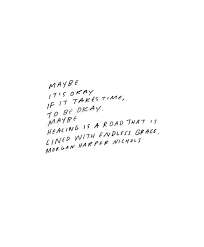 MAYBE
IT'S OKAY
IF IT TAKES TIME,
TO BE OKAY.
MAYBE
HEALING IS A ROAD THAT IS
LINED WITH ENDLESS GRACE.
MORGAN HARPER NICHOLS